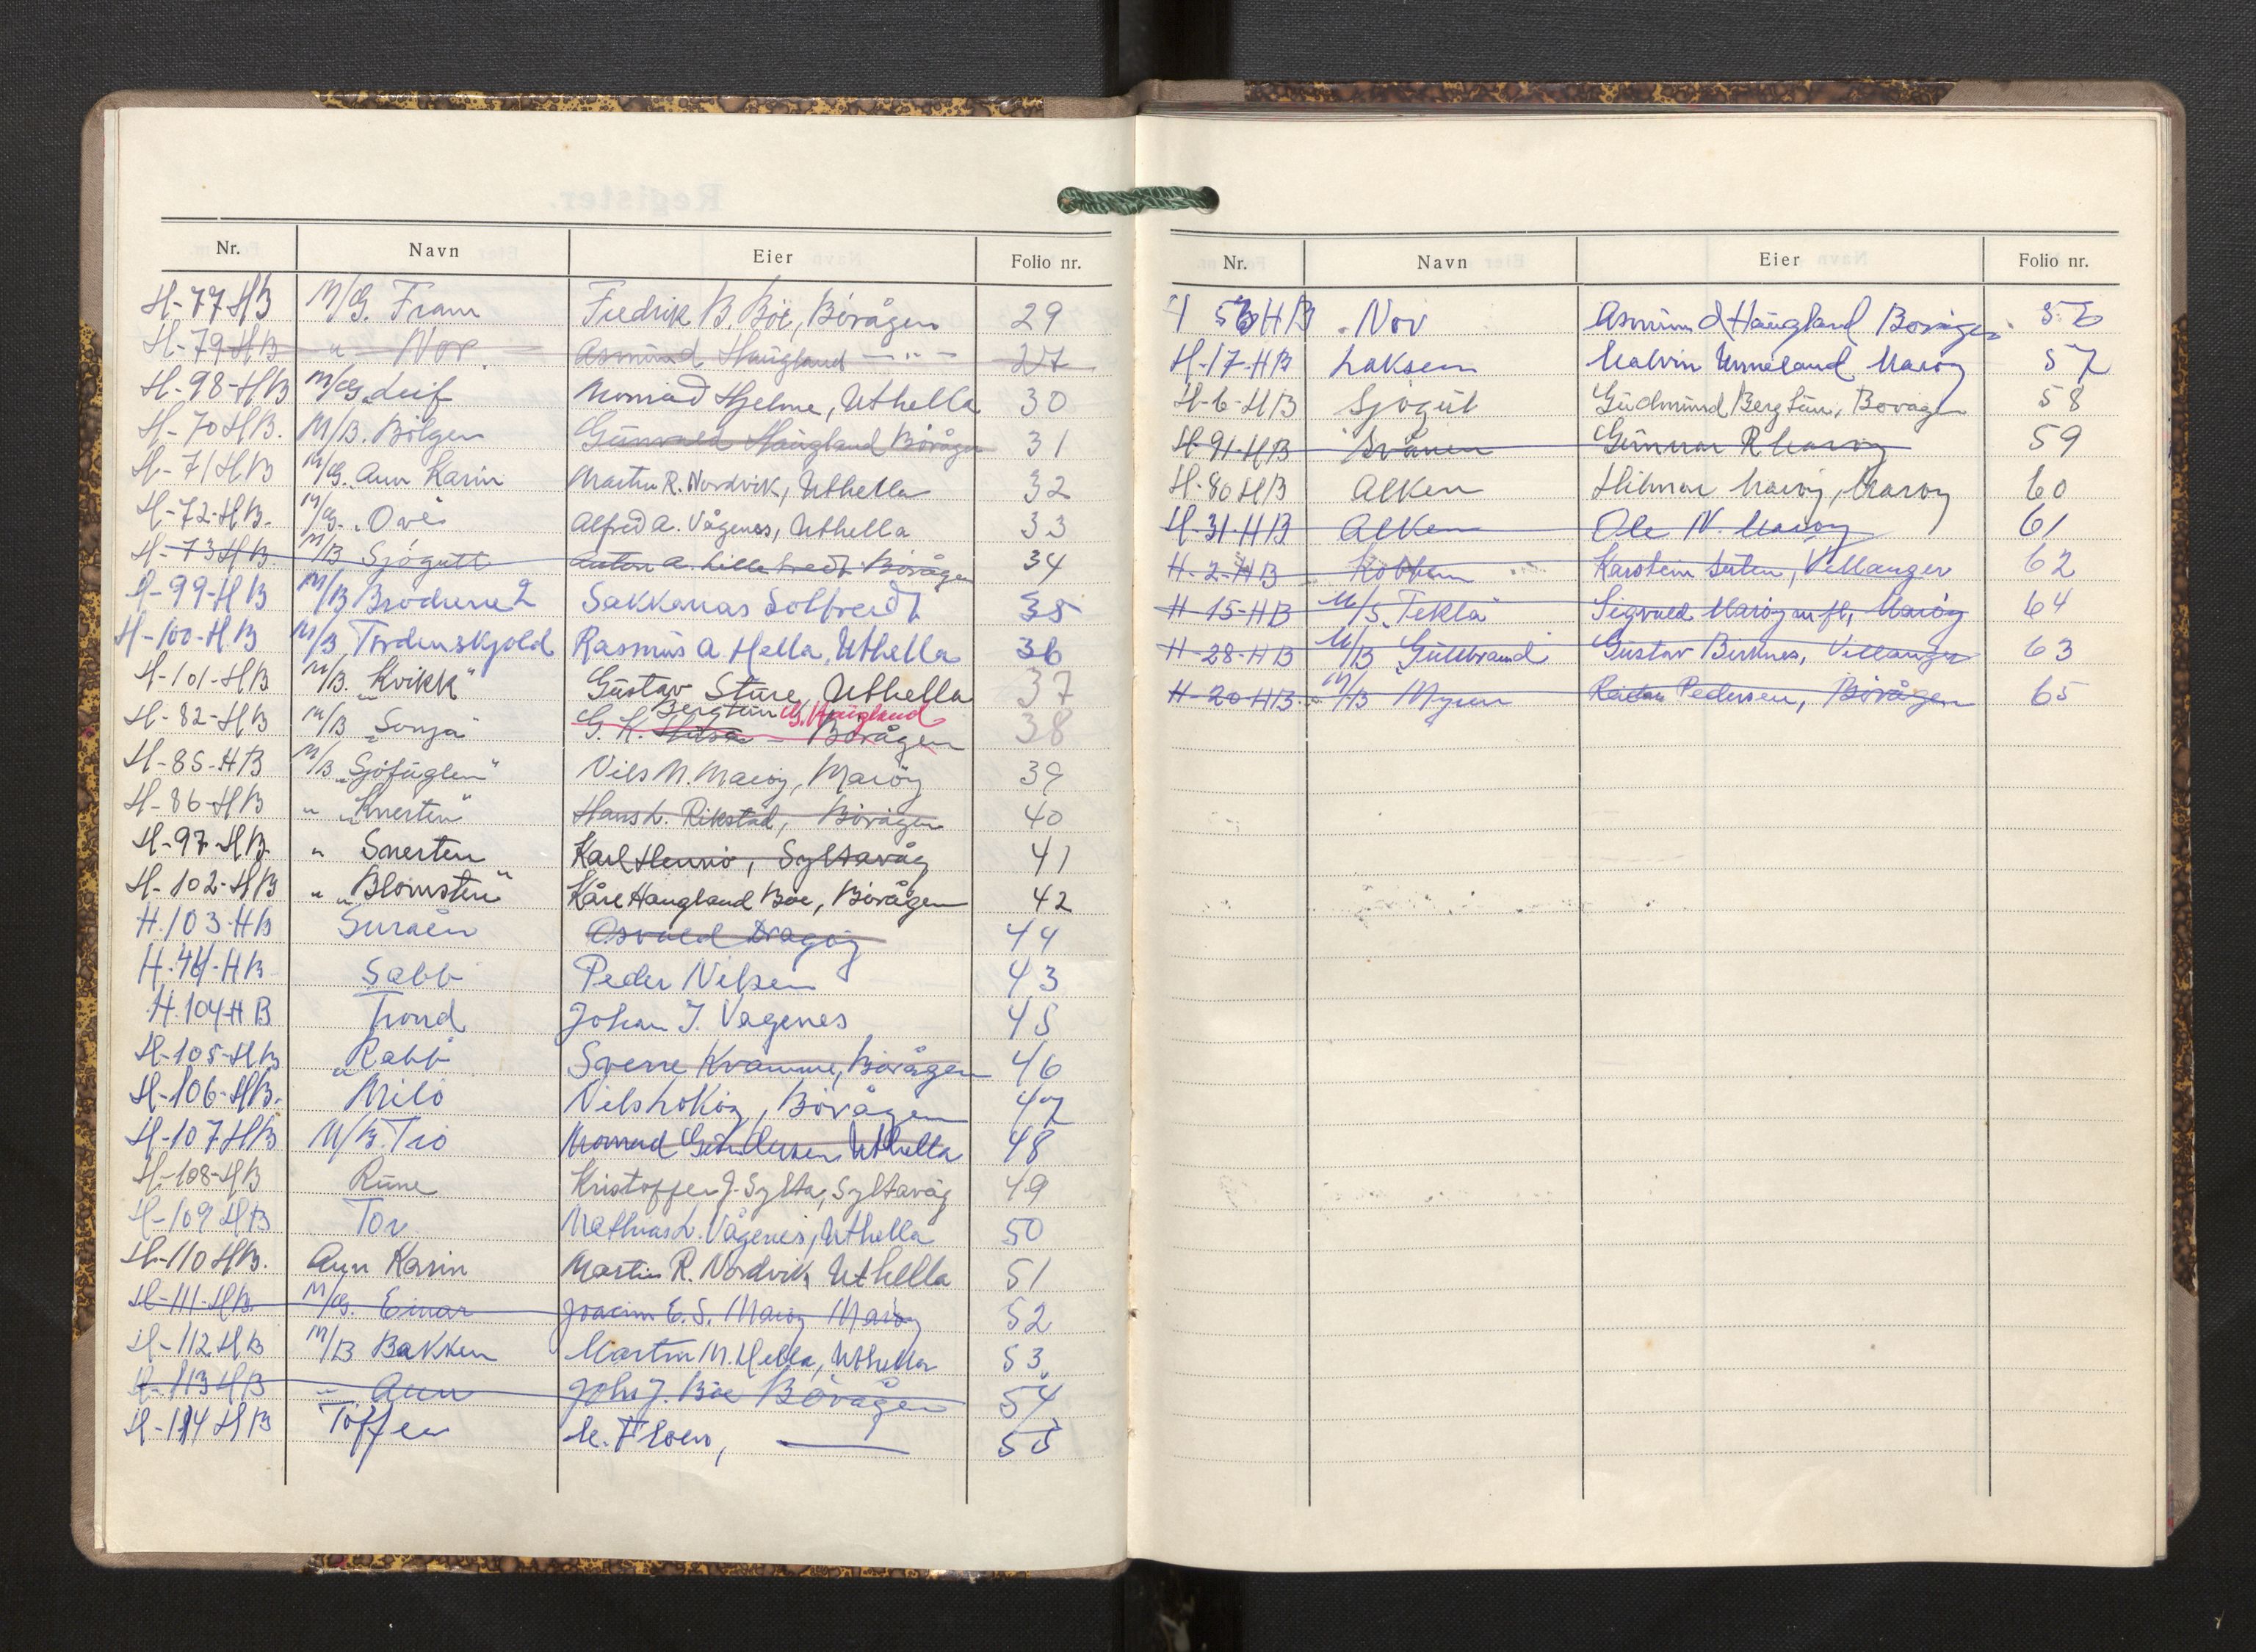 Nr. Navn Eier Folio nr.
H-77-HB M/G. Fram Fredrik B. Böe, Bövågen 29
H-79-HB " Nor Asmund Haugland — " — 27
H-98-HB M/G Leif Monrad Hjelme, Uthella 30
H-70 HB. M/B. Bölgen Gunvald Haugland Bövågen 31
H-71 HB M/G. Ann Karin Martin R. Nordvik, Uthella 32
H-72-HB. M/G. Ove Alfred A. Vågenes, Uthella 33
H-73 HB. M/B Sjögutt Anton A. Bövågen 34
H-99-HB M/B Brödrene 2 Sakkarias Soltveidt 35
H-100-H.B M/B Tordenskjold Rasmus A. Hella, Uthella 36
H-101-HB M/B. "Kvikk" Gustav Sture, Uthella 37
Bergtun G. Haugland
H-82-HB M/B "Sonja" G. H. - Bovågen 38
H-85-HB M/B "Sjöfuglen" Nils N. Maröy, Maröy 39
H-86-HB " "Knerten" Hans L. Rikstad, Bövågen 40
H-97-HB " Snerten Karl Hennö, Syltavåg 41
H-102-HB " "Blomsten" Kåre Haugland Boe, Bövågen 42
H.103-HB Osvald Dragöy 44
H.44-HB Sabb Peder Nilsen 43
H.104-HB Trond Johan J. Vagenes 45
H-105-HB "Rabb" Sverre Kvamme, Bövågen 46
H-106-HB. Milo Nils Loköy, Bövågen 47
H-107 HB M/B. Trio Monrad Uthella 48
H-108-HB Rune Kristoffer J. Sylta, Syltavåg 49
H-109 HB Tor Mathias L. Vågenes, Uthella 50
H-110 HB. Ann Karin Martin R. Nordvik, Uthella 51
H-111-HB. M/G. Einar Joacim E. S. Maröy Maröy 52
H-112 HB M/B Bakken Martin M. Hella, Uthella 53
H-113 HB " Ann Johs J. Böe Bövågen 54
H-114 HB Toffen M. Floen, — 55
Nr. Navn Eier Folio nr.
H 56 HB Nov Asmund Haugland Bovågen 56
H-17-HB Laksen Malvin Unneland Maröy 57
H-6-HB Sjögut Gudmund Bergtun, Bovågen 58
H-91-HB Svanen Gunnar R Maröy 59
H-80 HB Alken Hilmar Maröy, Maröy 60
H-31-HB Alken Ole N. Maröy 61
H-2-HB Kobben Karstein Seten, Villanger 62
H-15-HB M/S. "Tekla" Sigvald Maröy m fl, Maröy 64
H-28-HB M/B "Gullbrand" Gustav Birknes, Villanger 63
H-20-HB. M/B Myren Reidar Pedersen, Bövågen 65